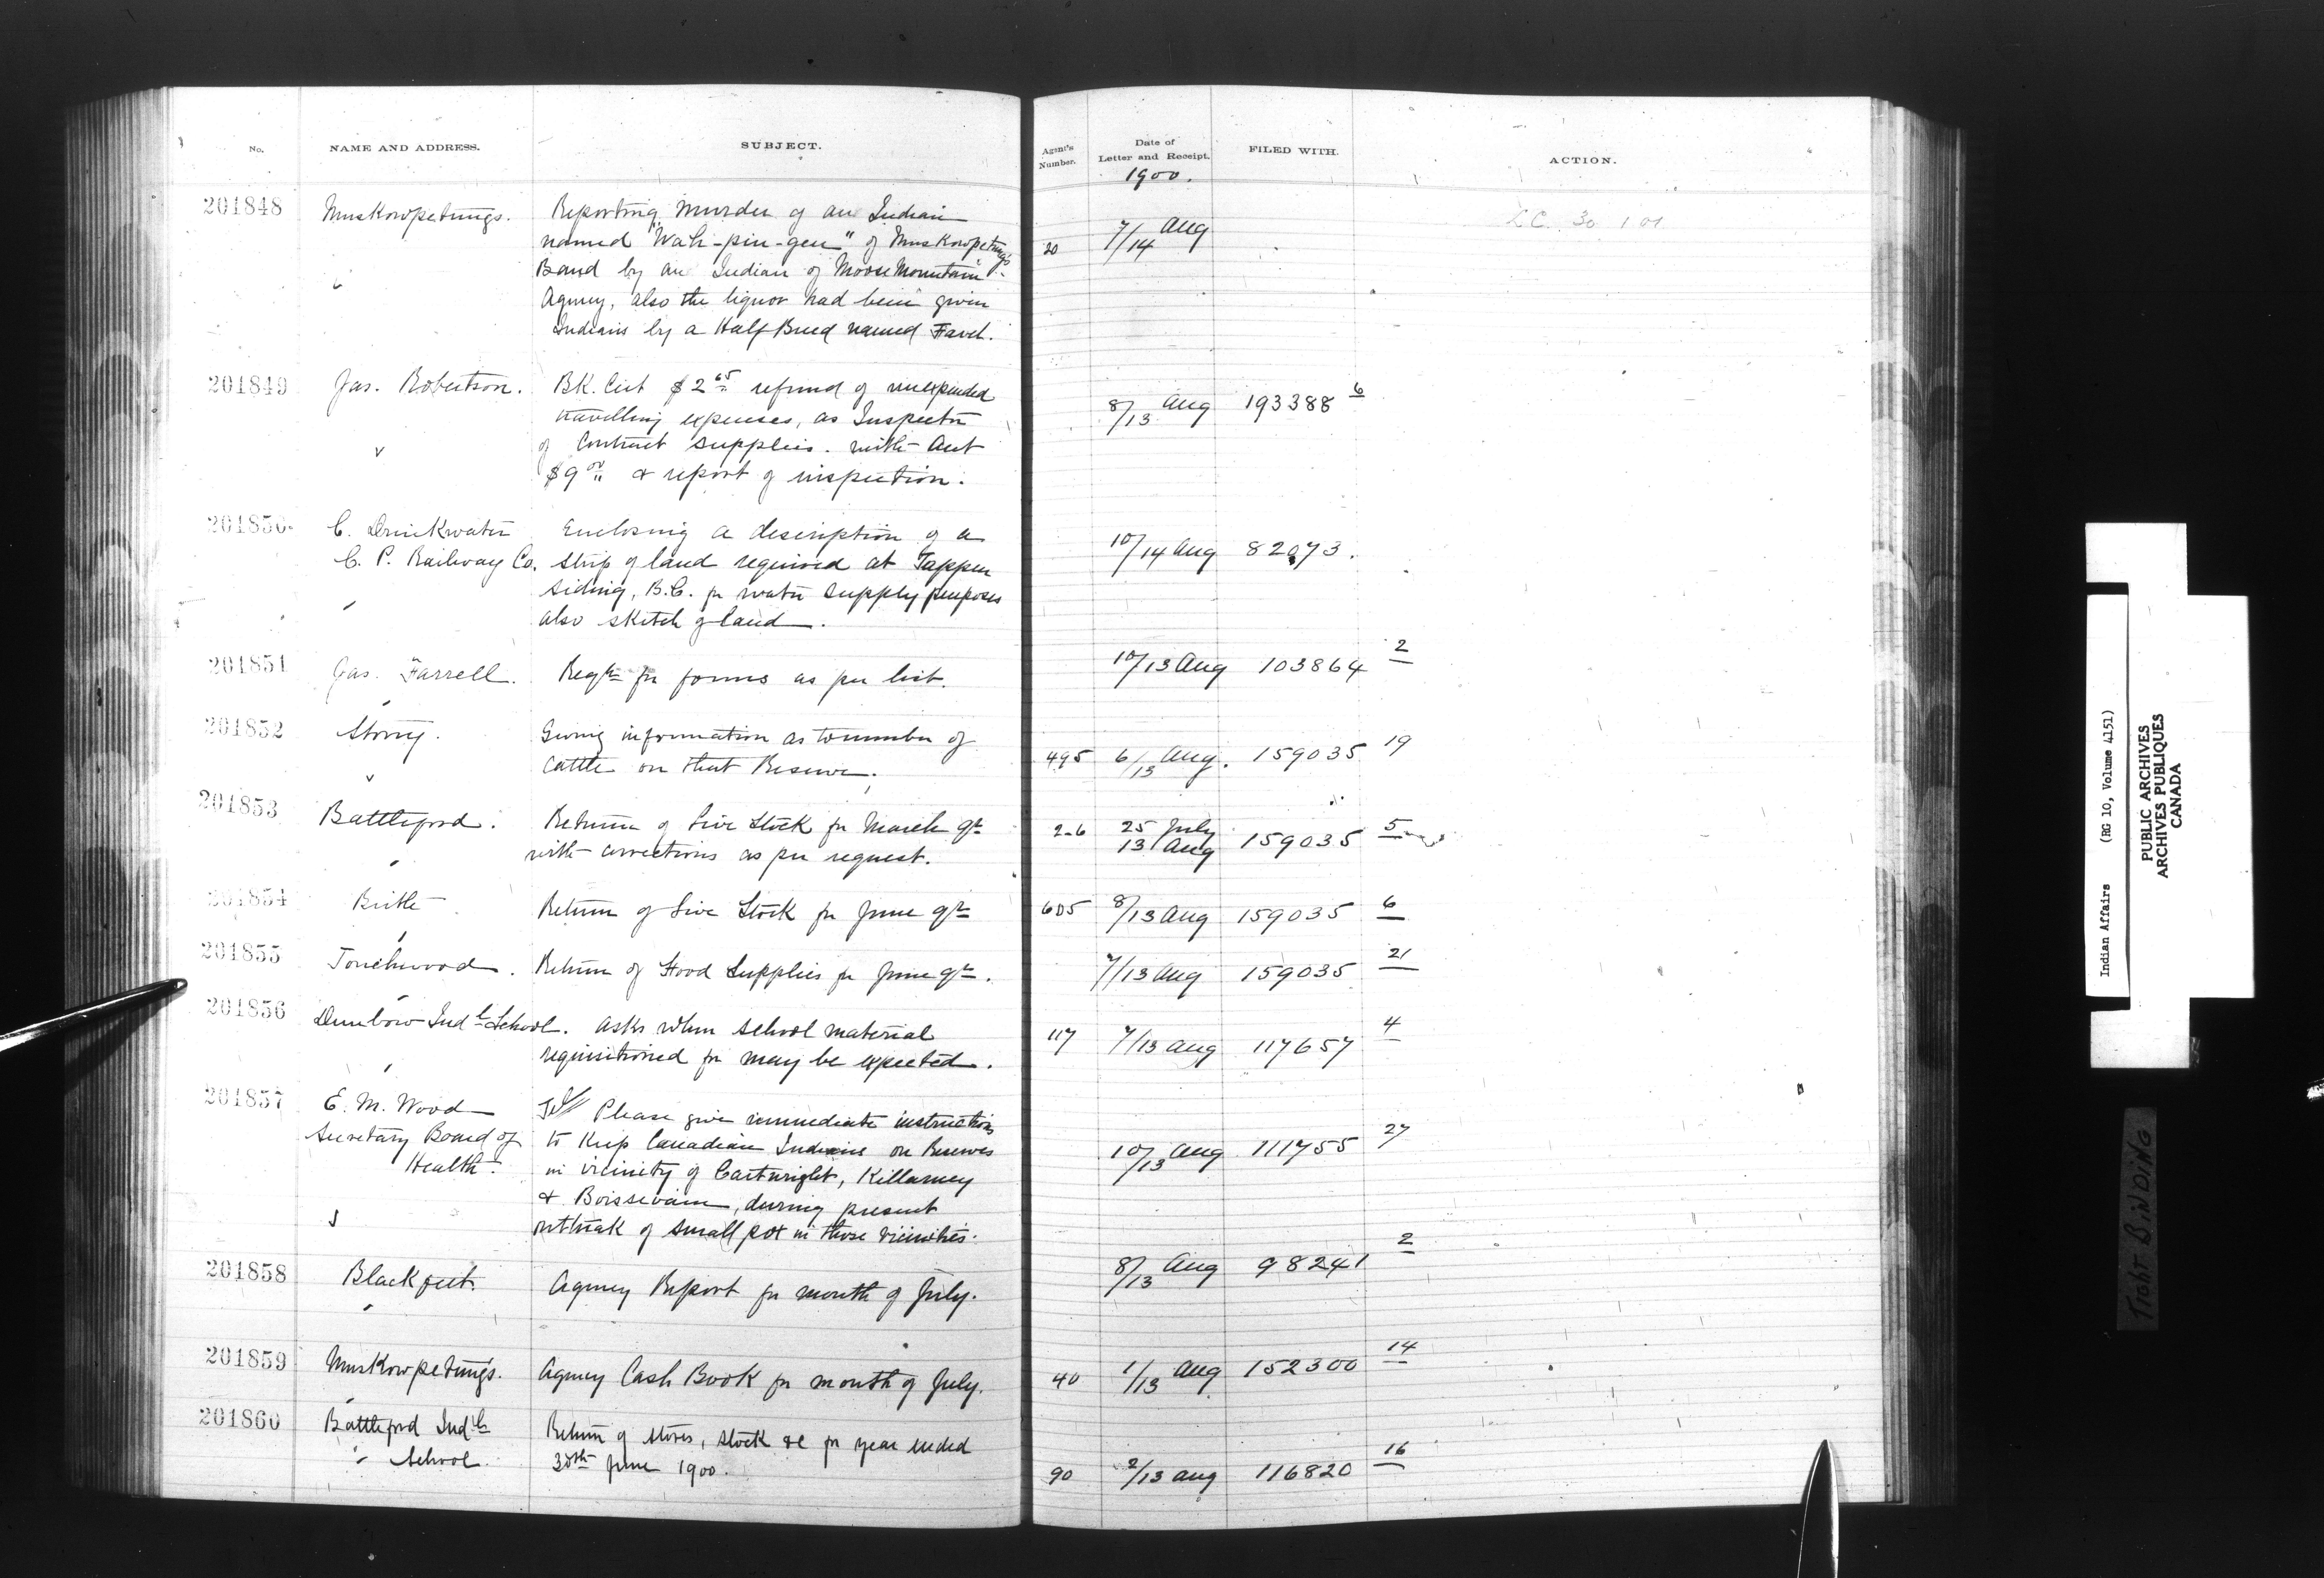 No. NAME AND ADDRESS. SUBJECT. Agent's Number. Date of Letter and Receipt. FILED WITH. ACTION.
1900.
201848 Muskowpetungs. Reporting Murder of an Indian
named "Wah-pin-gen" of Muskowpetung's 20 7/14 Aug
Band by an Indian of Moose Mountain
Agency, also the liquor had been given
Indians by a Half Breed named Favel.
201849 Jas. Robertson. BK. Cert $2 65 refund of unexpended
travelling expenses, as Inspector 8/13 Aug 193388 6
of Contract supplies. with Acct
$9 00 & report of inspection.
201850 C. Drinkwater Enclosing a description of a
C. P. Railway Co. strip of land required at Tappen 10/14 Aug 82073.
Siding, B.C. for water supply purposes
also sketch of land.
201851 Jas. Farrell. Reqn for forms as per list. 10/13 Aug 103864 2
201852 Stony. Giving information as to number of
cattle on that Reserve. 495 6/13 Aug. 159035 19
201853 Battleford. Return of Live Stock for March qr 26 25 July 13 Aug 159035 5
with corrections as per request.
201854 Birtle Return of Live Stock for June qr 605 8/13 Aug 159035 6
201855 Touchwood. Return of Food Supplies for June qr. 7/13 Aug 159035 21
201856 Dunbow Indl School. asks when school material 117 7/13 Aug 117657 4
requisitioned for may be expected.
201857 E. M. Wood Tel Please give immediate instructions
Secretary Board of to Keep Canadian Indians on Reserves 10/13 Aug 111755 27
Health. in vicinity of Cartwright, Killarney
& Boissevain, during present
outbreak of small pox in those vicinities.
201858 Blackfeet. Agency Report for month of July. 8/13 Aug 98241 2
201859 Muskowpetung's. Agency Cash Book for month of July. 40 1/13 Aug 152300 14
201860 Battleford Indl Return of stores, stock &c for year ended
School. 30th June 1900. 90 2/13 Aug 116820 16
Indian Affairs (RG 10, Volume 4151)
PUBLIC ARCHIVES
ARCHIVES PUBLIQUES
CANADA
TIGHT BINDING